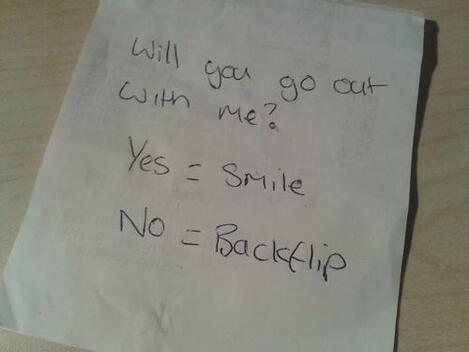 Will you go out
with me?
Yes = Smile
No = Backflip